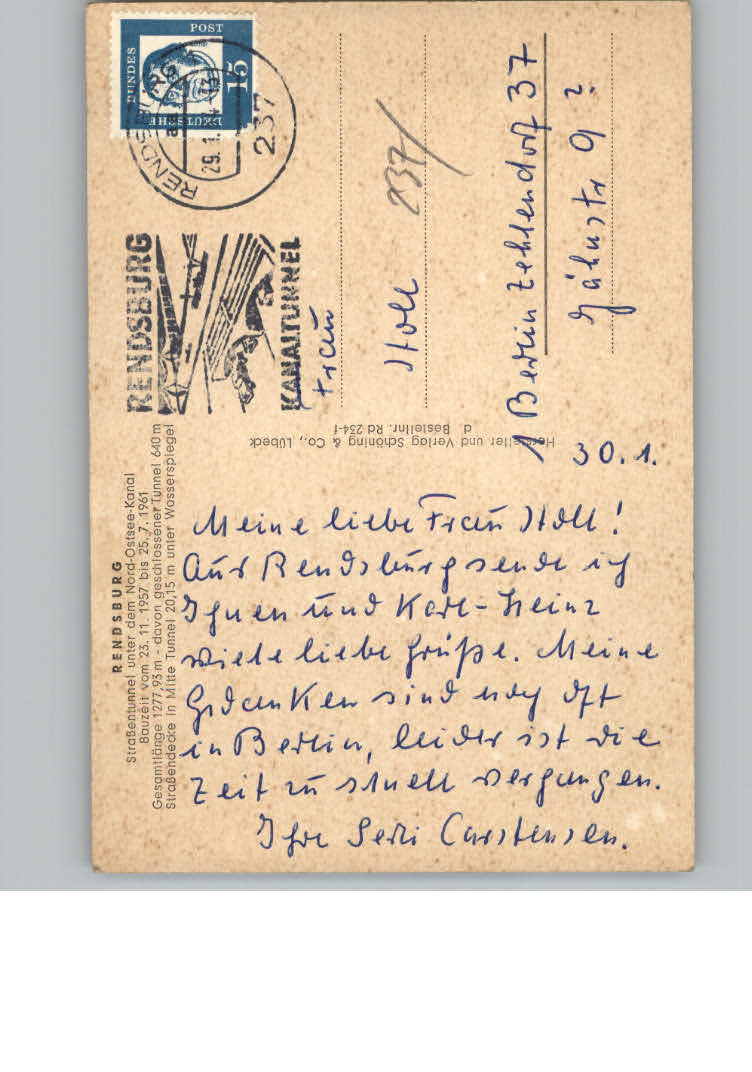 RENDSBURG
Straßentunnel unter dem Nord-Ostsee-Kanal
Bauzeit vom 23. 11. 1957 bis 25. 7. 1961
Gesamtlänge 1277,93 m - davon geschlossener Tunnel 640 m
Straßendecke in Mitte Tunnel 20,15 m unter Wasserspiegel
30.1.
Meine liebe Frau Holl!
Aus Rendsburg sende ich
Ihnen und Karl-Heinz
viele liebe Grüße. Meine
Gedanken sind noch oft
in Berlin, leider ist die
Zeit zu schnell vergangen.
Ihre Carstensen.
Hersteller und Verlag Schöning & Co., Lübeck
d Bestellnr. Rd 234-f
DEUTSCHE
BUNDES
POST
15
RENDSBURG
29.1.
237
RENDSBURG
KANALTUNNEL
237
Frau
Holl
1 Berlin Zehlendorf 37
Jähnstr 9 ?